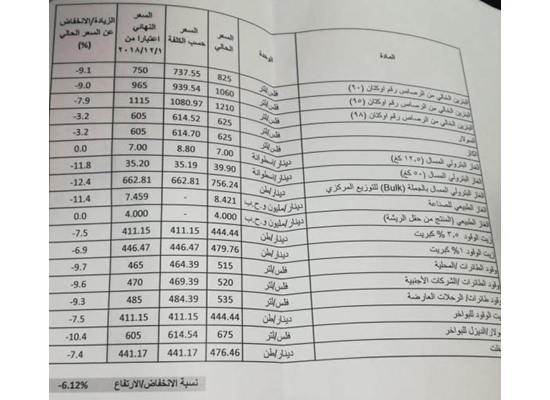 المادة الوحدة السعر الحالي السعر حسب الكلفة السعر النهائي اعتبارا من ٢٠١٨/١٢/١ الزيادة/الانخفاض عن السعر الحالي (%)
البنزين الخالي من الرصاص رقم اوكتان (٩٠) فلس/لتر 825 737.55 750 -9.1
البنزين الخالي من الرصاص رقم اوكتان (٩٥) فلس/لتر 1060 939.54 965 -9.0
البنزين الخالي من الرصاص رقم اوكتان (٩٨) فلس/لتر 1210 1080.97 1115 -7.9
السولار فلس/لتر 625 614.52 605 -3.2
الكاز فلس/لتر 625 614.70 605 -3.2
الغاز البترولي المسال (١٢.٥ كغ) دينار/اسطوانة 7.00 8.80 7.00 0.0
الغاز البترولي المسال (٥٠ كغ) دينار/اسطوانة 39.90 35.19 35.20 -11.8
الغاز البترولي المسال بالجملة (Bulk) للتوزيع المركزي دينار/طن 756.24 662.81 662.81 -12.4
الغاز الطبيعي للصناعة دينار/مليون و.ح.ب 8.421 - 7.459 -11.4
الغاز الطبيعي (المنتج من حقل الريشة) دينار/مليون و.ح.ب 4.000 - 4.000 0.0
زيت الوقود ٣.٥ % كبريت دينار/طن 444.44 411.15 411.15 -7.5
زيت الوقود ١% كبريت دينار/طن 479.76 446.47 446.47 -6.9
وقود الطائرات /المحلية فلس/لتر 515 464.39 465 -9.7
وقود الطائرات /الشركات الأجنبية فلس/لتر 520 469.39 470 -9.6
وقود طائرات/ الرحلات العارضة فلس/لتر 535 484.39 485 -9.3
زيت الوقود للبواخر دينار/طن 444.44 411.15 411.15 -7.5
سولار/الديزل للبواخر فلس/لتر 675 614.54 605 -10.4
دينار/طن 476.46 441.17 441.17 -7.4
نسبة الانخفاض/الارتفاع -6.12%